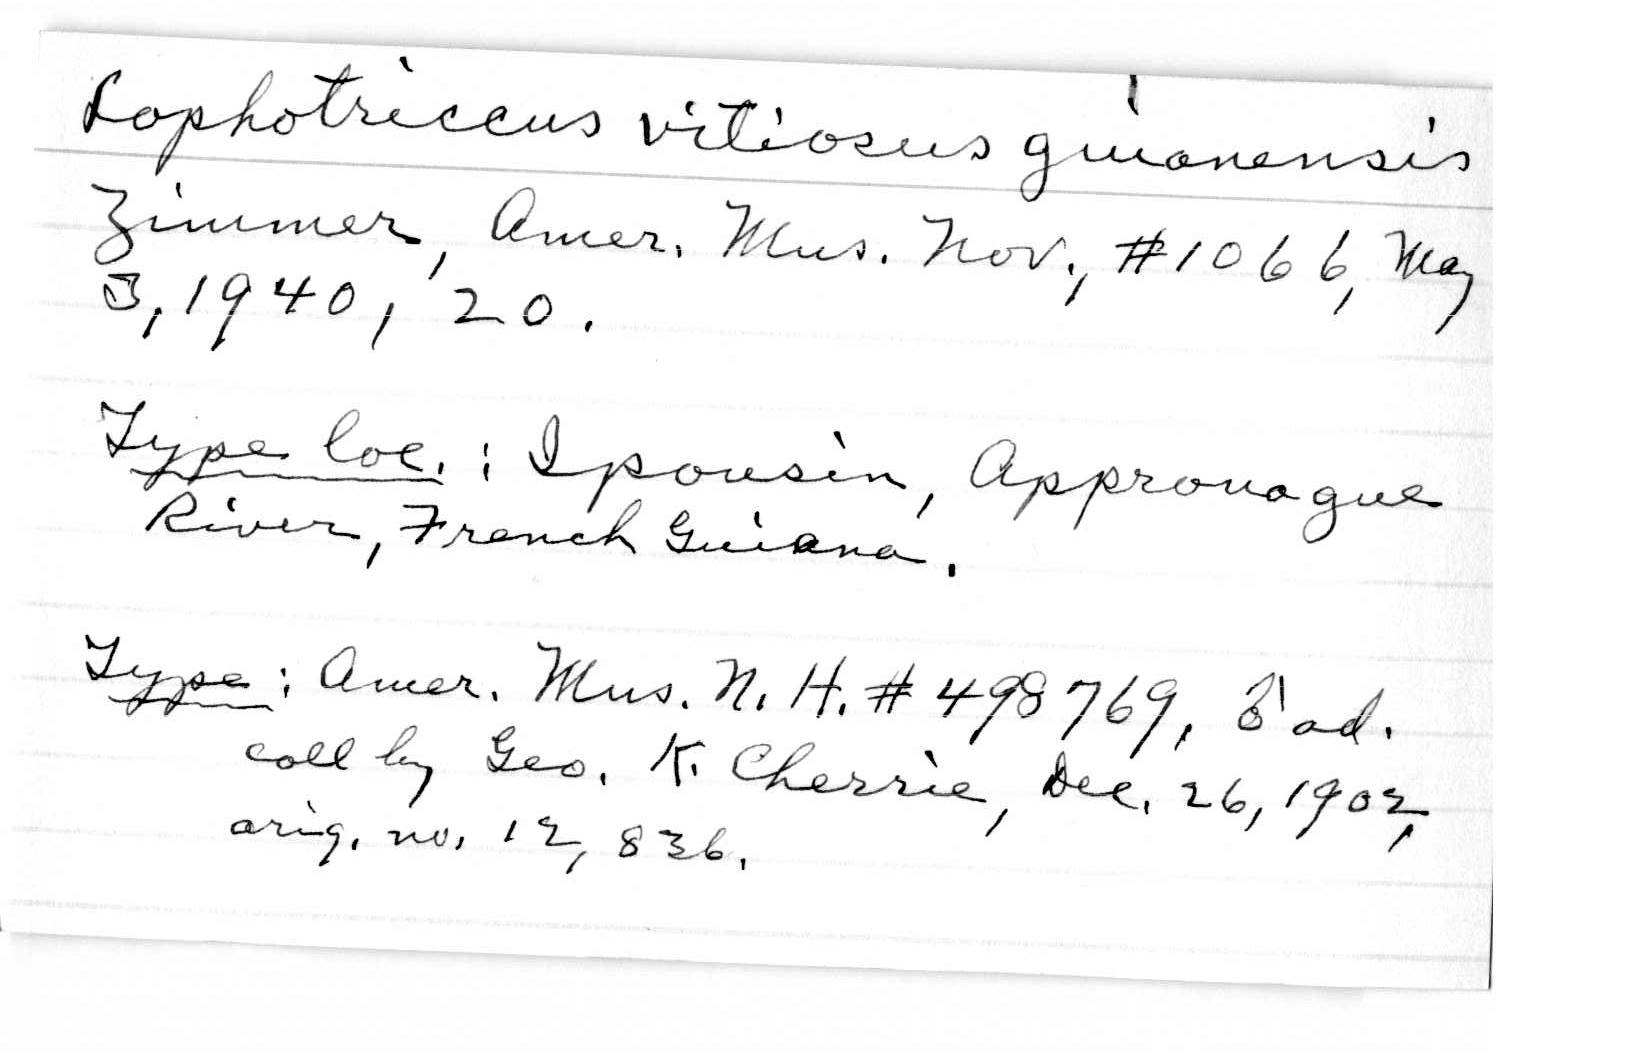 Lophotriccus vitiosus guianensis
Zimmer, Amer. Mus. Nov., #1066, May
3, 1940, 20.
Type loc. : Ipousin, Approuague
River, French Guiana.
Type : Amer. Mus. N. H. # 498769, ♂ ad.
coll by Geo. K. Cherrie, Dec. 26, 1902,
orig. no. 12,836.